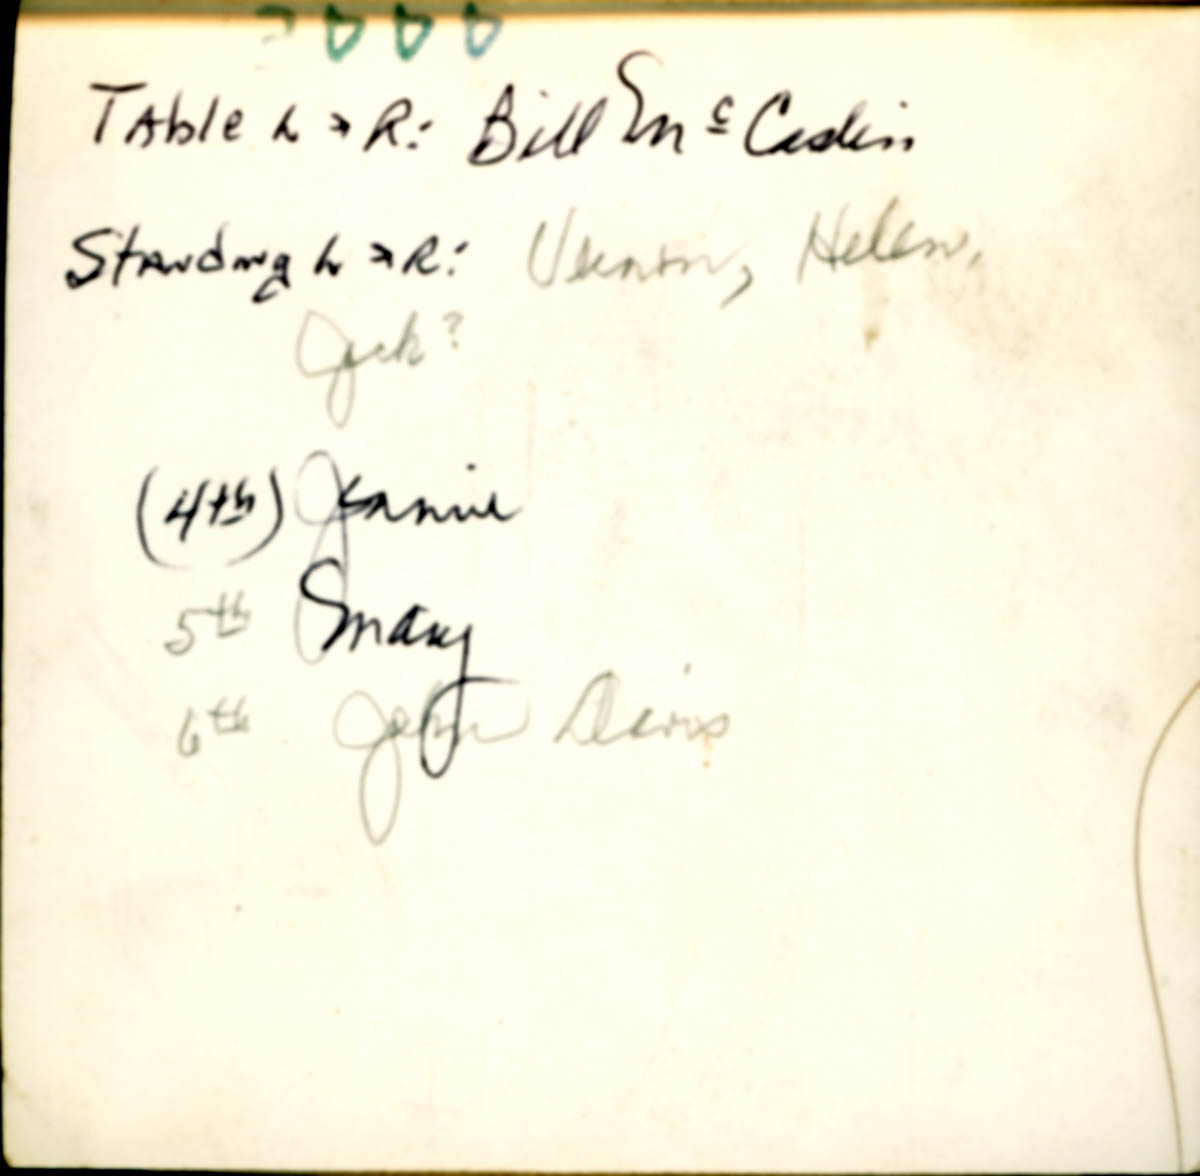 Table L → R: Bill McCaslin
Standing L → R: Vernon, Helen,
Jack?
(4th) Jennie
5th Mary
6th John Davis